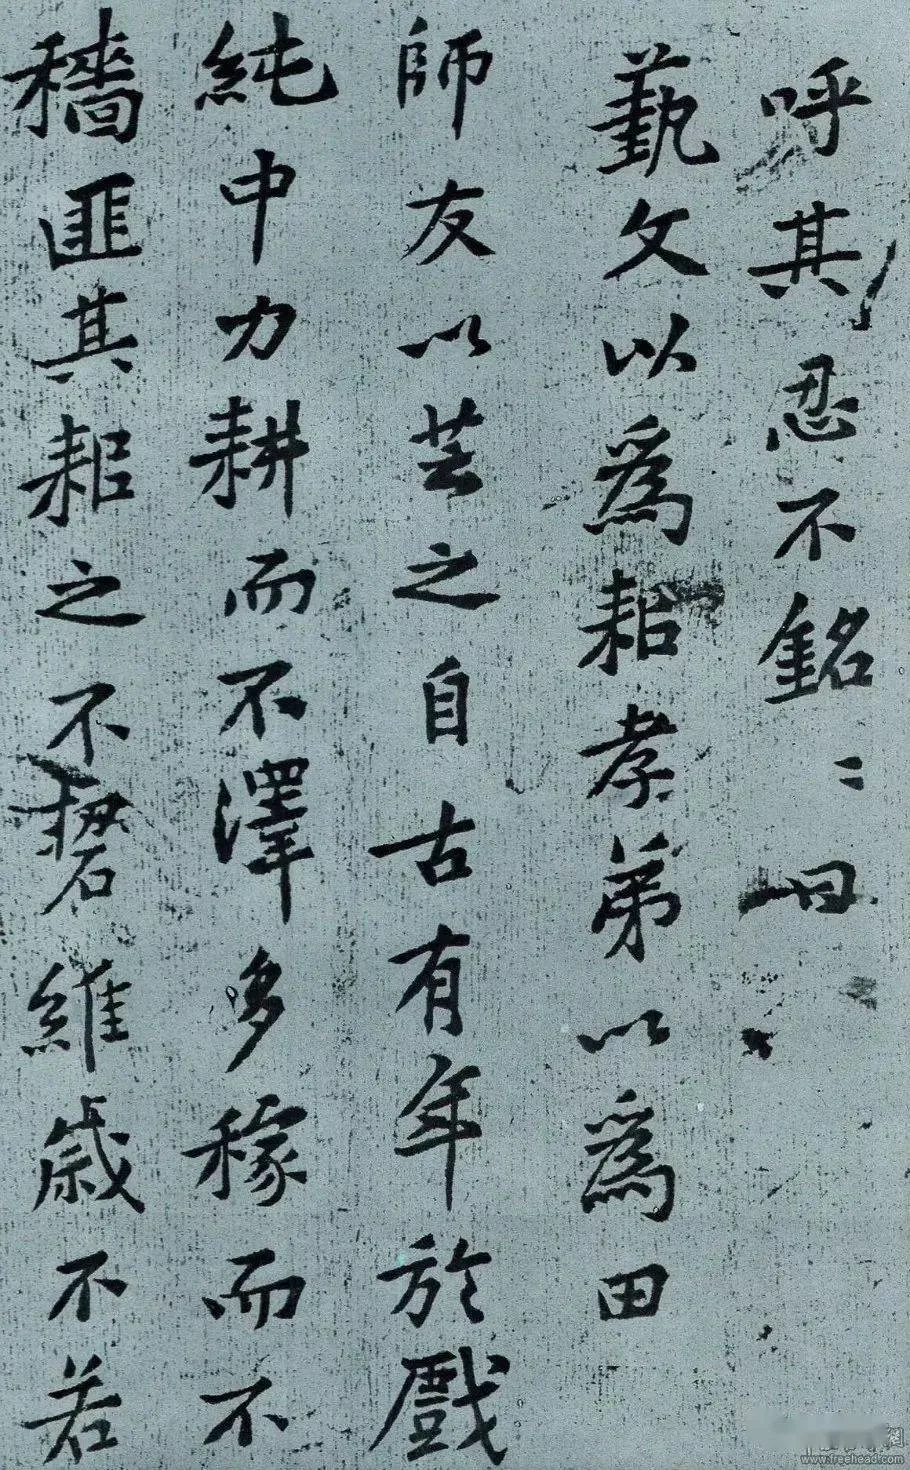 呼其忍不銘〻曰
藝文以為耜孝弟以為田
師友以芸之自古有年於戲
純中力耕而不澤多稼而不
穡匪其耜之不䂮維歲不若
www.freehead.com